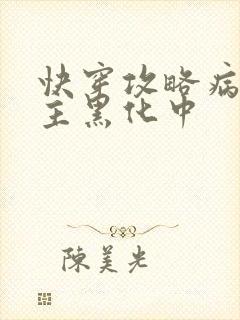 快穿攻略病
主黑化中
陳美光